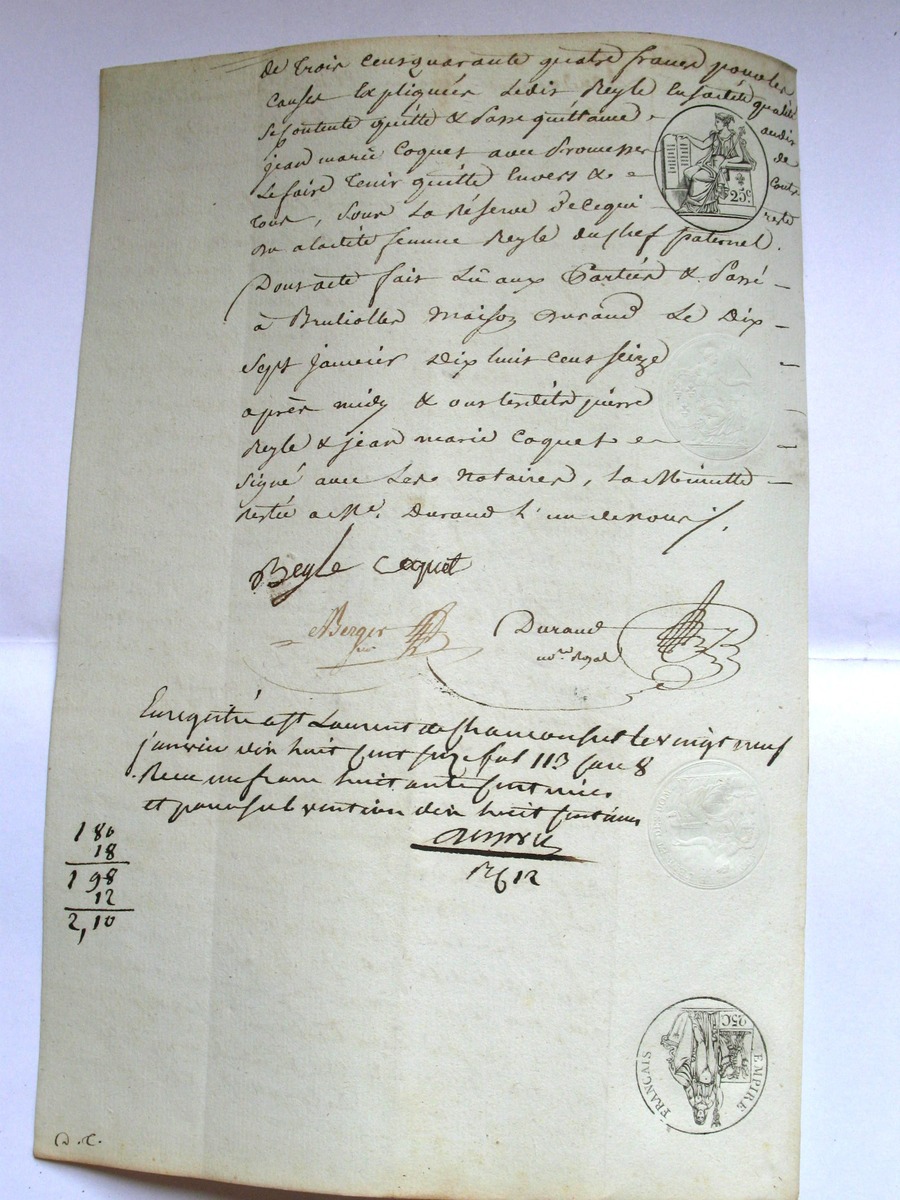 de trois cens quarante quatre francs pour les
causes expliquées ledit Reyle en sa dite qualité
se contente quitte & passe quittance audit
jean marie Coquet avec promesse de
le faire tenir quitte envers & contre
tous, sous la réserve de ce qui reste
du a la dite femme Reyle du chef paternel.
Dont acte fait lû aux parties & passé
à Brulioller maison Durand le dix
sept janvier dix huit cent seize
après midy & ont lesdits pierre
Reyle & jean marie Coquet
signé avec les notaires, la Minutte
restée a Me. Durand l'un de nous
25c
Beyle Coquet
Berger
Durand
no.re Royal
Enregistré a St Laurent de Chamousset le vingt neuf
janvier dix huit cent seize fol 113 case 8
Recu un franc huitante centimes
et pour subvention dix huit centimes
12
180
18
198
12
2,10
25C
EMPIRE FRANÇAIS
D.C.